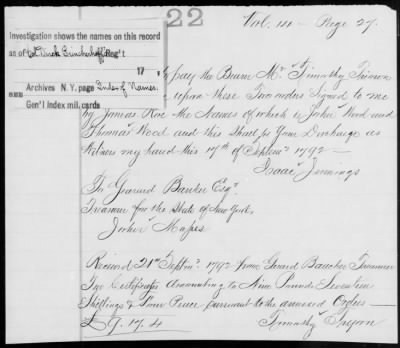 22
Vol. 14 - Page 27.
Investigation shows the names on this record
as of Col Brinckerhoff Reg't
17
Archives N. Y. page Index of Names.
Gen'l index mil. cards
pay the Bearer Mr. Timothy
upon these Two orders Signed to me
by James Roe the Names of which is John Wood and
Thomas Wood and this Shall be Your Discharge as
Witness my hand this 17th of Septemr 1792 —
Isaac Jennings
To Gerard Banker Esqr.
Treasurer for the State of New York,
John Mapes
Received 21st Septmr. 1792 from Gerard Bancker Treasurer
Two Certificates Amounting to Nine Pounds Seventeen
Shillings & Four Pence pursuant to the annexed Orders —
£ 9. 17. 4
Timothy